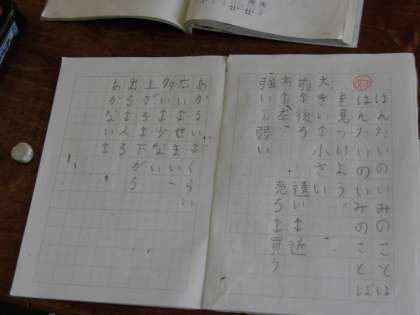 はんたいのいみのことば
はんたいのいみのことば
を見つけよう。
大きい↔小さい
前↔後ろ 遠い↔近
右↔左 売る↔買う
強い↔弱い
あかるい↔くらい
広い↔せまい
多い↔少ない
上がる↔下がる
出る↔入る